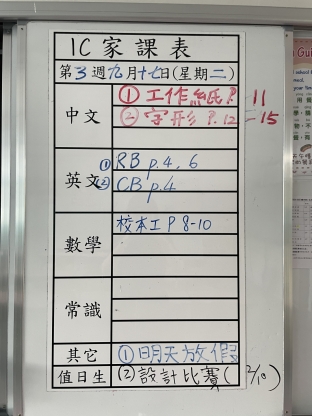 1C 家課表
第 3 週 九 月 十七 日(星期 二)
中文
① 工作紙 P. 11
② 字形 P. 12 - 15
英文
① RB p. 4, 6
② CB p. 4
數學
校本工 P 8-10
常識
其它
① 明天放假
值日生
(2) 設計比賽 ( 2/10 )